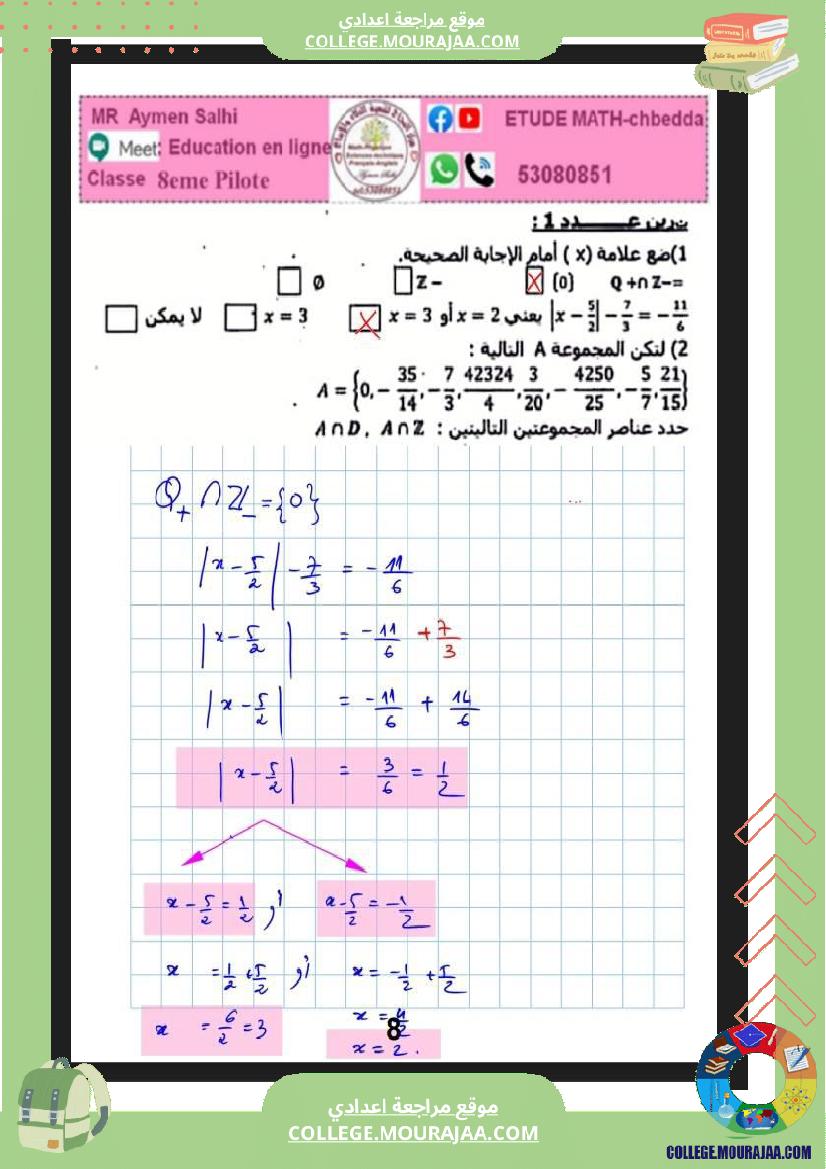 موقع مراجعة اعدادي
COLLEGE.MOURAJAA.COM
MR Aymen Salhi
Meet: Education en ligne
Classe 8eme Pilote
ETUDE MATH-chbedda
53080851
تمرين عـــــدد 1 :
1)ضع علامة (x ) أمام الإجابة الصحيحة.
Q +∩ Z−= {0} ☒ Z − ☐ ∅ ☐
|x − 5/2| − 7/3 = − 11/6 يعني x = 2 أو x = 3 ☒ x = 3 ☐ لا يمكن ☐
2) لتكن المجموعة A التالية :
A = {0, − 35/14, − 7/3, 42324/4, 3/20, − 4250/25, − 5/7, 21/15}
حدد عناصر المجموعتين التاليتين : A ∩ Z , A ∩ D
Q+ ∩ Z_ = {0}
...
|x − 5/2| − 7/3 = − 11/6
|x − 5/2| = − 11/6 + 7/3
|x − 5/2| = − 11/6 + 14/6
|x − 5/2| = 3/6 = 1/2
x − 5/2 = 1/2 أو x − 5/2 = − 1/2
x = 1/2 + 5/2 أو x = − 1/2 + 5/2
x = 6/2 = 3
x = 4/2
x = 2 .
8
موقع مراجعة اعدادي
COLLEGE.MOURAJAA.COM
COLLEGE.MOURAJAA.COM